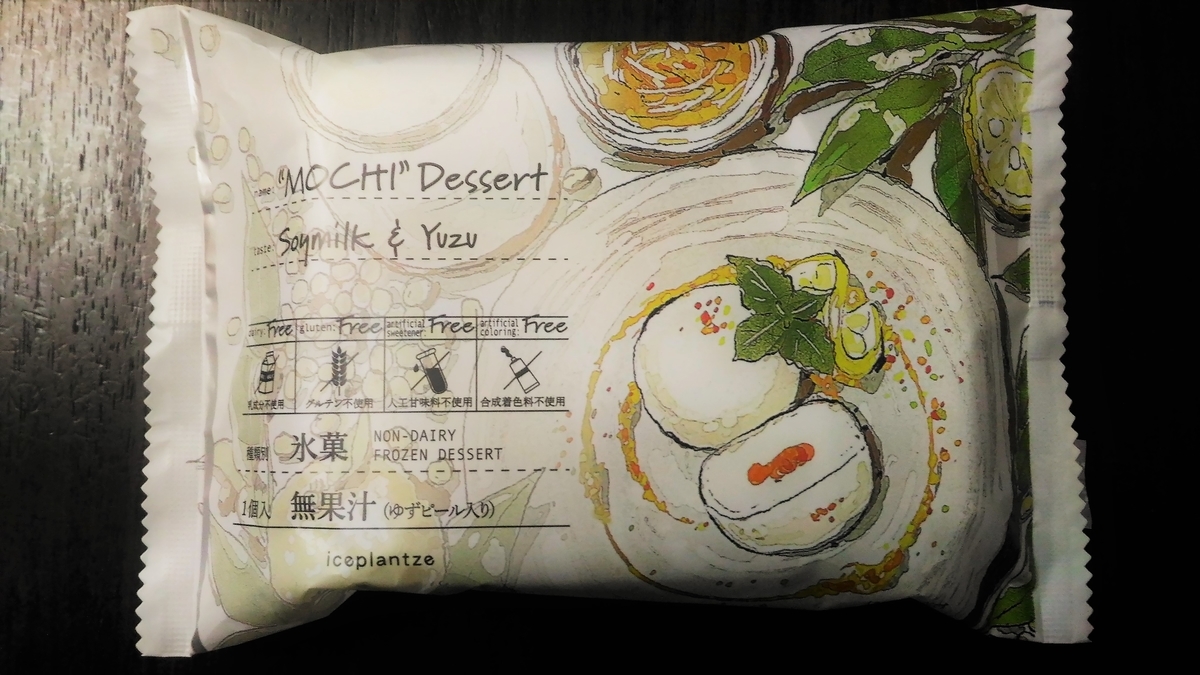 name: "MOCHI" Dessert
taste: Soymilk & Yuzu
dairy: Free gluten: Free artificial sweetener: Free artificial coloring: Free
乳成分不使用 グルテン不使用 人工甘味料不使用 合成着色料不使用
種類別 氷菓 NON-DAIRY FROZEN DESSERT
1個入 無果汁 (ゆずピール入り)
iceplantze